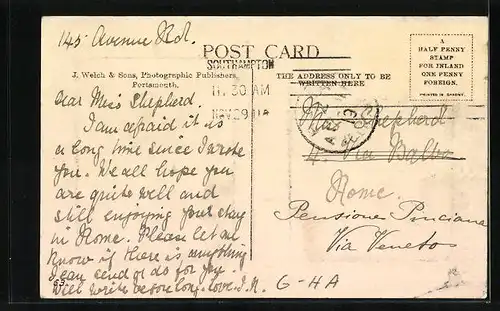 145 Avenue Rd.
POST CARD
J. Welch & Sons, Photographic Publishers,
Portsmouth.
SOUTHAMPTON
11.30 AM
NOV 29 11
THE ADDRESS ONLY TO BE
WRITTEN HERE
A
HALF PENNY
STAMP
FOR INLAND
ONE PENNY
FOREIGN.
PRINTED IN SAXONY.
Dear Miss Shepherd.
I am afraid it is
a long time since I wrote
you. We all hope you
are quite well and
still enjoying your stay
in Rome. Please let me
know if there is anything
I can send or do for you.
Will write before long. love. J.N.
63.
Miss Shepherd
4 Via Balbo
Rome.
Pensione Pinciana
Via Veneto
G-HA